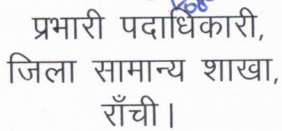 प्रभारी पदाधिकारी,
जिला सामान्य शाखा,
राँची।